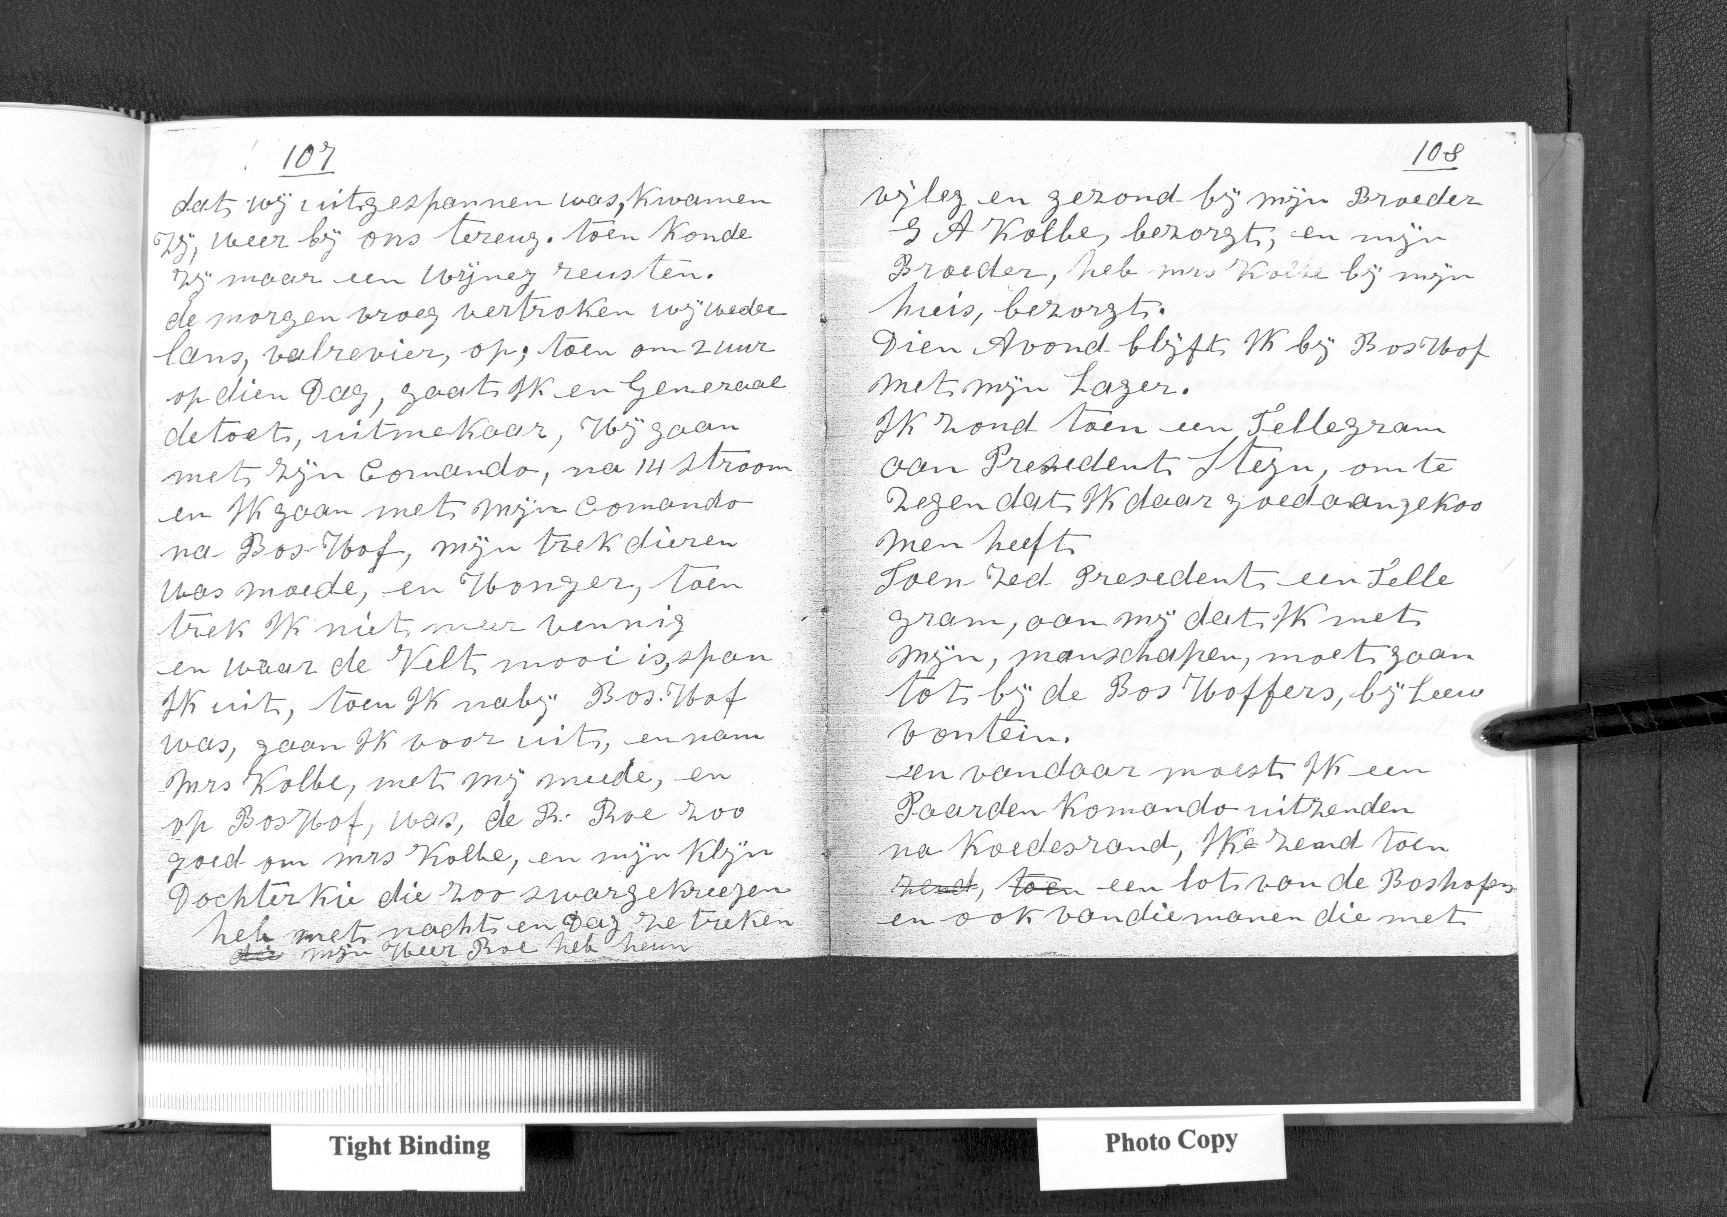 107
dat wij uitgespannen was, kwamen
zij, weer bij ons tereug. toen konde
zij maar een wijneg reusten.
de morgen vroeg vertroken wij weder
lans, valrevier, op, toen om 2 uur
op dien Dag, gaat Ik en Generaal
detoet, uitmekaar, Hij gaan
met zijn Comando, na 14 stroom
en Ik gaan met mijn Comando
na Bos-Hof, mijn trek dieren
was moede, en Honger, toen
trek Ik niet meer vennig
en waar de Velt mooi is, span
Ik uit, toen Ik naby Bos-Hof
was, gaan Ik voor uit, en nam
Mrs Kolbe, met mij meede, en
op Bos Hof, was, de R. Roe zoo
goed om mrs Kolbe, en mijn klijn
Dochterkie die zoo swargekreegen
heb met nacht en Dag ze treken
die mijn Heer Roe heb heun
108
vijleg en gezond bij mijn Broeder
G A Kolbe, bezorgt, en mijn
Broeder, heb mrs Kolbe bij mijn
huis, bezorgt.
Dien Avond blijft Ik bij Bos Hof
met mijn Lager.
Ik zond toen een Tellegram
aan Presedent Stegn, om te
zegen dat Ik daar goed aangekoo
men heeft
Toen zed Presedent een Telle
gram, aan mij dat Ik met
mijn, manschapen, moet gaan
tot bij de Bos Hoffers, bij Leeu
vontein.
en vandaar moest Ik een
Paarden Komando uitzenden
na Koedesrand, Ik zend toen
zend, toen een lot van de Boshofers
en ook van die manen die met
Tight Binding
Photo Copy